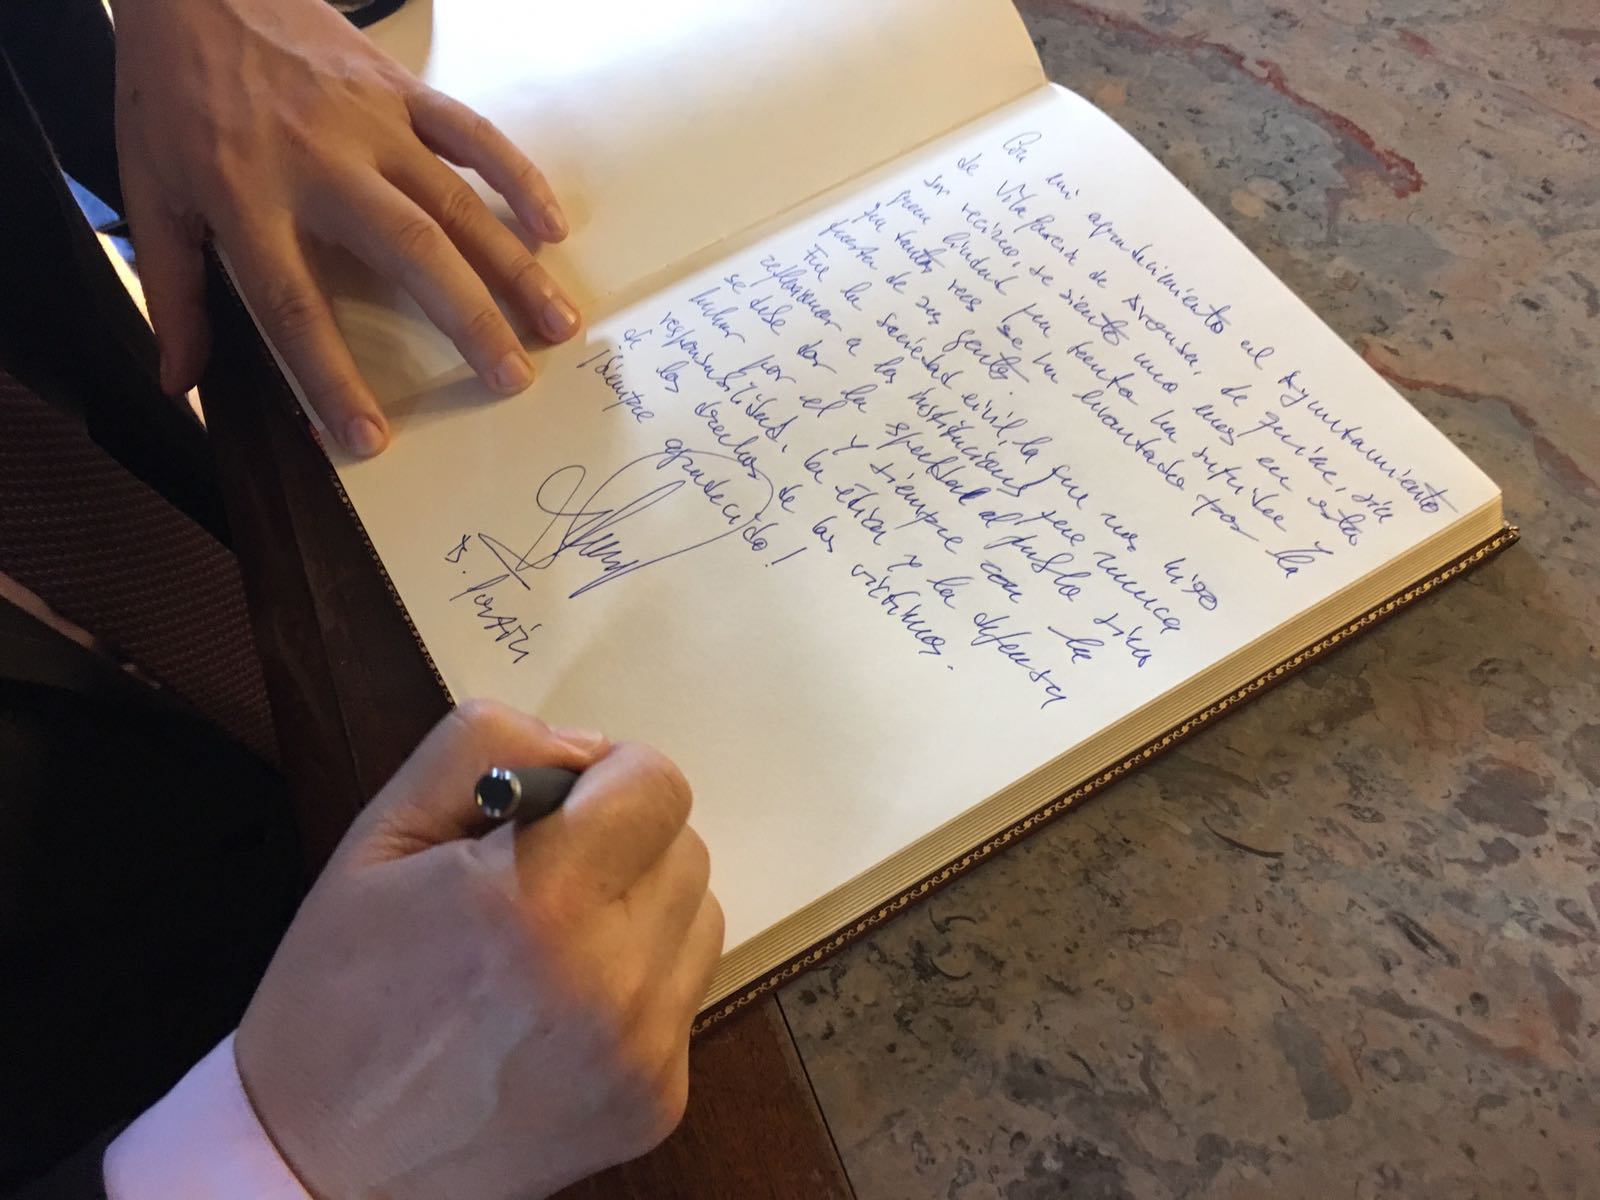 Con mi agradecimiento al Ayuntamiento
de Vilagarcía de Arousa, de quine, sin
ser vecino, se siente uno mas en esta
gran ciudad que tanto ha sufrido y
que tantas veces se ha levantado por la
fuerza de sus gentes.
Fue la sociedad civil, la que nos hizo
reflexionar a las instituciones que nunca
se debe dar la espalda al pueblo sino
luchar por el y siempre con la
responsabilidad, la ética y la defensa
de los derechos de las víctimas.
¡Siempre agradecido!